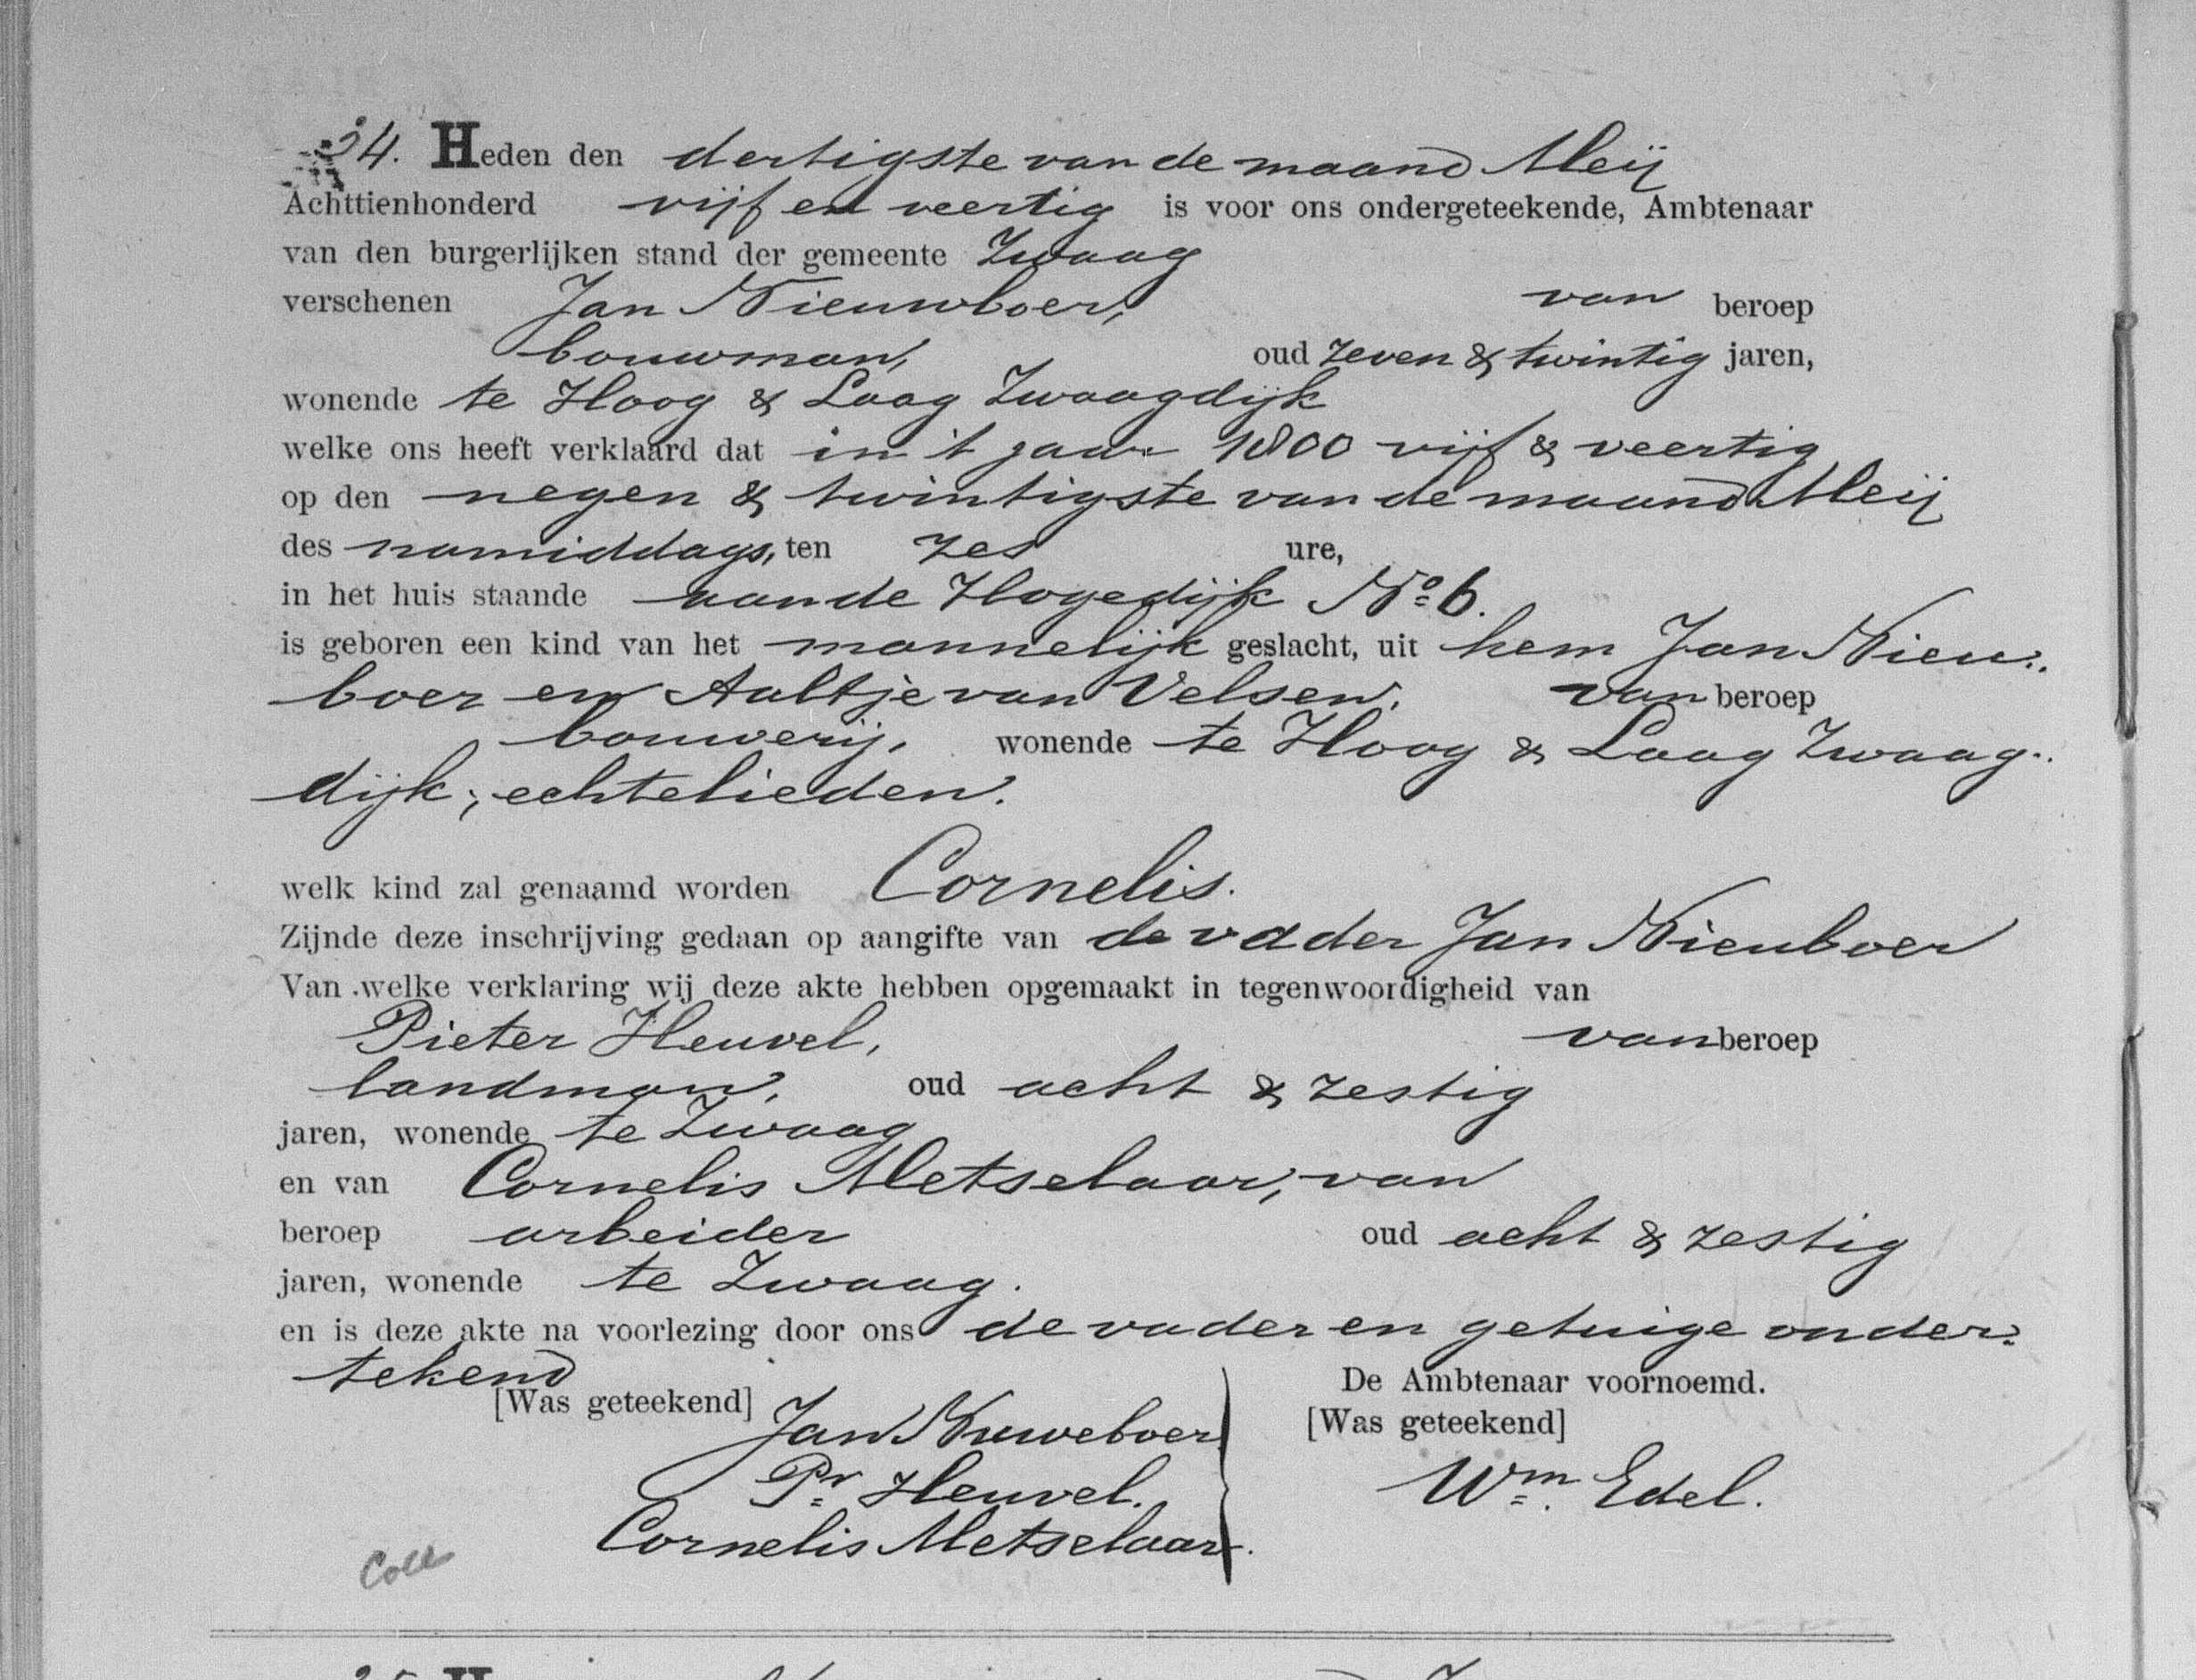 34. Heden den dertigste van de maand Meij
Achttienhonderd vijf en veertig is voor ons ondergeteekende, Ambtenaar
van den burgerlijken stand der gemeente Zwaag
verschenen Jan Nieuwboer, van beroep
bouwman, oud zeven & twintig jaren,
wonende te Hoog & Laag Zwaagdijk
welke ons heeft verklaard dat in 't jaar 1800 vijf & veertig
op den negen & twintigste van de maand Meij
des namiddags, ten zes ure,
in het huis staande aan de Hogedijk No 6.
is geboren een kind van het mannelijk geslacht, uit hem Jan Nieu=
boer en Aaltje van Velsen, van beroep
bouwerij, wonende te Hoog & Laag Zwaag=
dijk; echtelieden.
welk kind zal genaamd worden Cornelis.
Zijnde deze inschrijving gedaan op aangifte van de vader Jan Nieuboer
Van welke verklaring wij deze akte hebben opgemaakt in tegenwoordigheid van
Pieter Heuvel, van beroep
landman, oud acht & zestig
jaren, wonende te Zwaag
en van Cornelis Metselaar, van
beroep arbeider oud acht & zestig
jaren, wonende te Zwaag.
en is deze akte na voorlezing door ons de vader en getuige onder=
tekend
[Was geteekend] De Ambtenaar voornoemd.
Jan Nuweboer [Was geteekend]
Pr Heuvel. Wm. Edel.
Cornelis Metselaar.
Coll